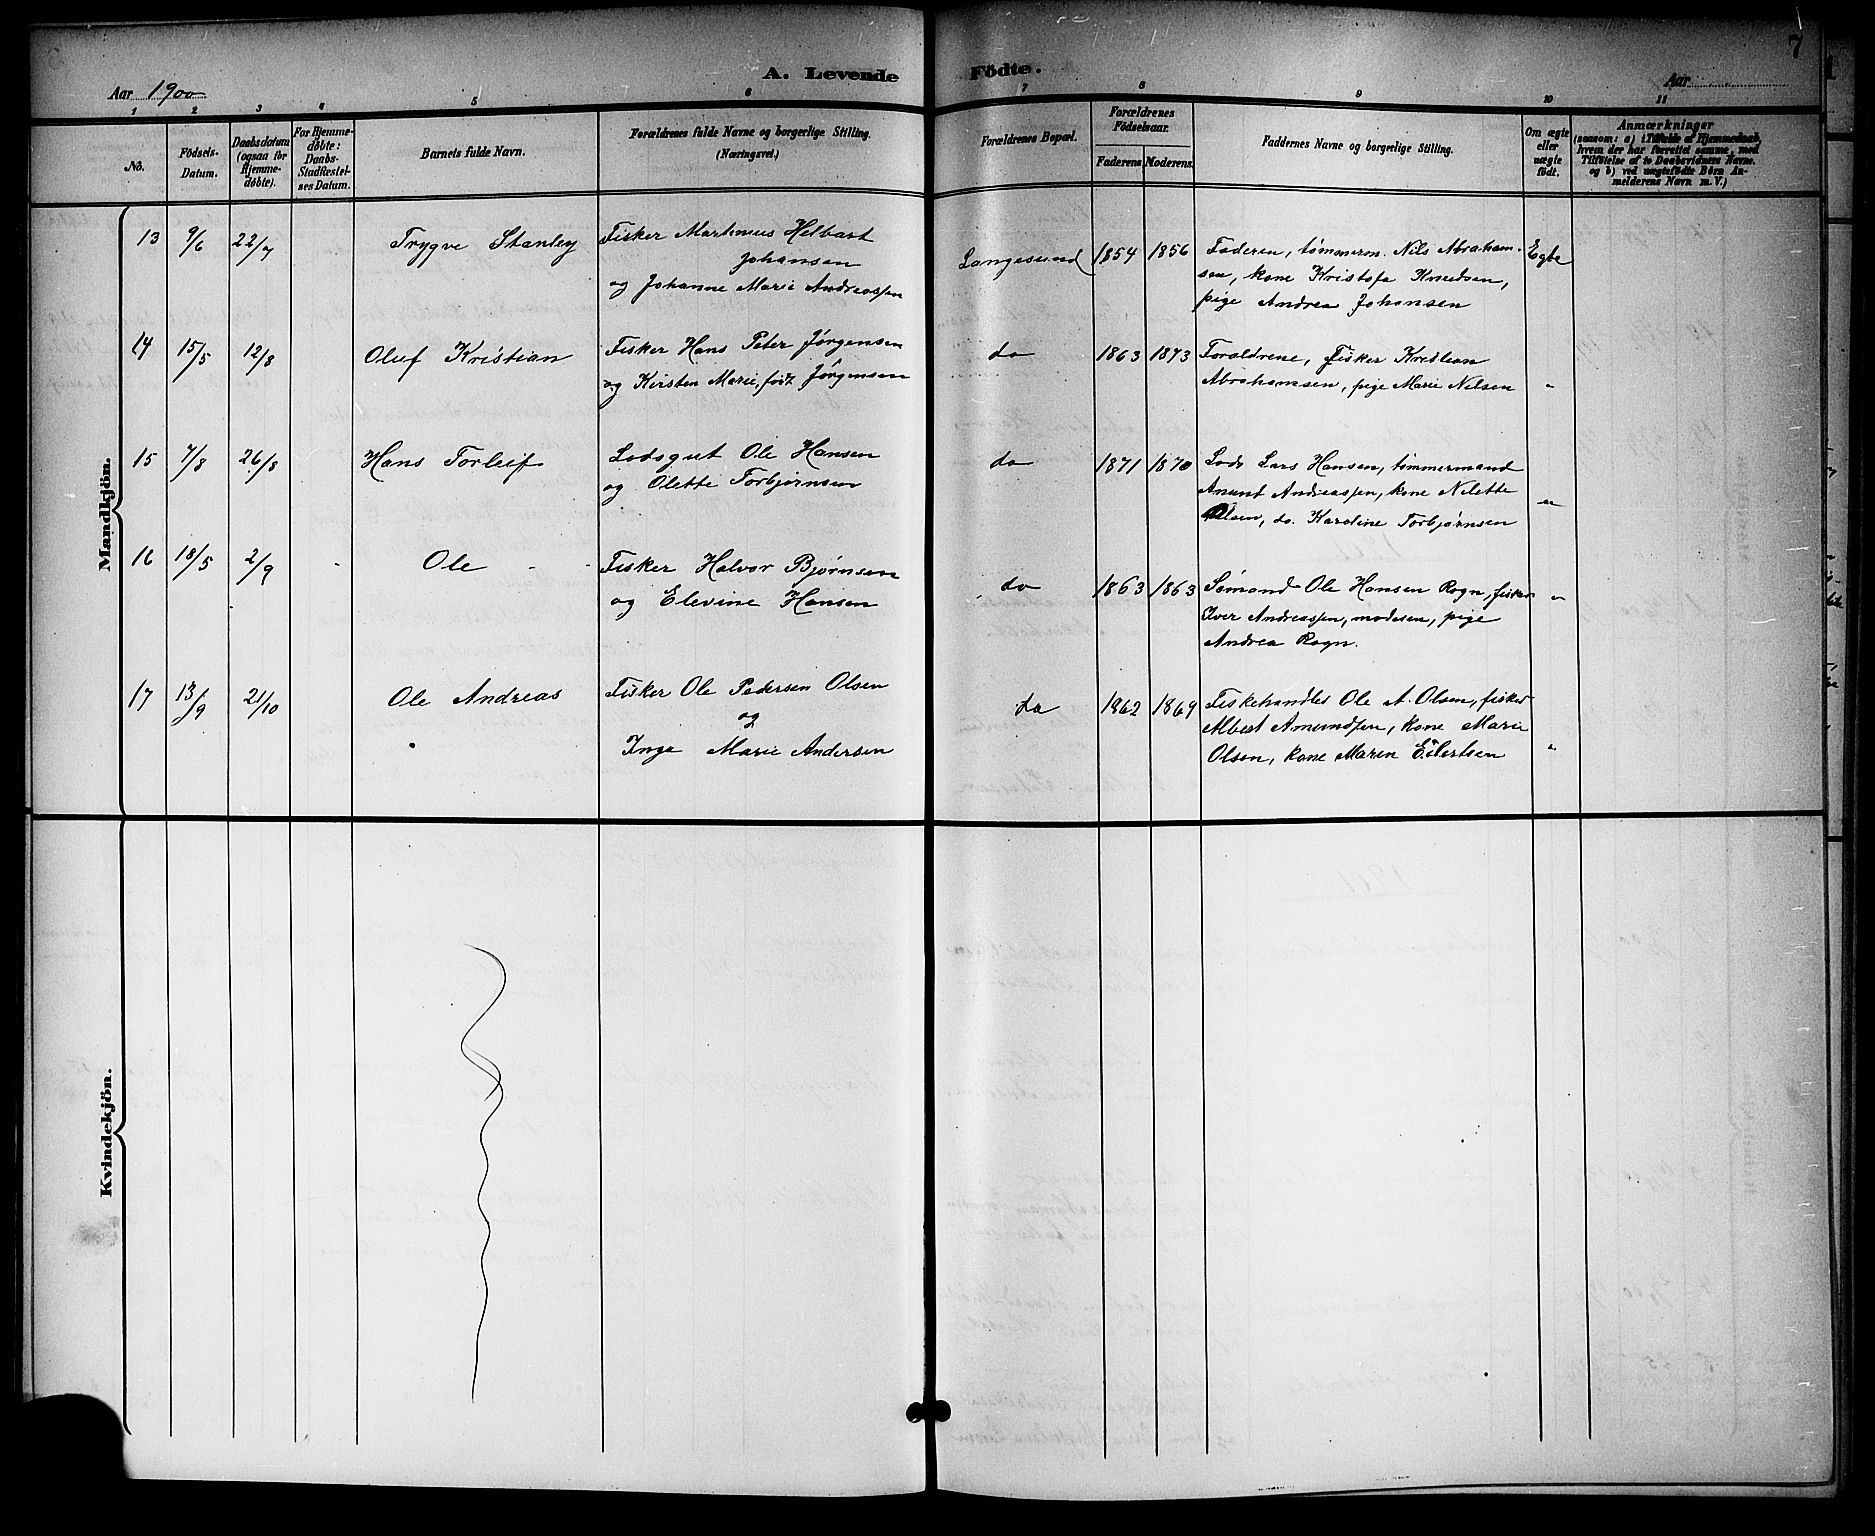 7
A. Levende Födte.
Aar 1900
Aar
1 2 3 4 5 6 7 8 9 10 11
No.
Födsels-Datum.
Daabsdatum (ogsaa for Hjemmedöbte).
For Hjemmedöbte: Daabs-Stadfæstelses Datum.
Barnets fulde Navn.
Forældrenes fulde Navne og borgerlige Stilling. (Næringsvei.)
Forældrenes Bopæl.
Forældrenes Födselsaar.
Faderens. Moderens.
Faddernes Navne og borgerlige Stilling.
Om ægte eller uægte födt.
Anmærkninger
(saasom: a) i Tilfælde af Hjemmedaab, hvem der har forrettet samme, med Tilföielse af to Daabsvidners Navne, og b) ved uægtefödte Börn Anmelderens Navn m. V.)
Mandkjön.
13 9/6 22/7 Trygve Stanley
Fisker Martinius Helbart
Johansen
og Johanne Marie Andreassen
Langesund 1854 1856
Faderen, tømmerm. Nils Abraham-
sen, kone Kristofa Knudsen,
pige Andrea Johansen
Egte
14 15/5 12/8 Oluf Kristian
Fisker Hans Peter Jørgensen
og Kirsten Marie, født Jørgensen
do 1863 1873
Forældrene, Fisker Kristian
Abrahamsen, pige Marie Nilsen "
15 7/8 26/8 Hans Torleif
Lodsgut Ole Hansen
og Olette Torbjørnsen
do 1871 1870
Lods Lars Hansen, tømmermand
Anunt Andreassen, kone Nilette
Olsen, do. Karoline Torbjørnsen "
16 18/5 2/9 Ole
Fisker Halvor Bjørnsen
og Elevine Hansen
do 1863 1863
Sømand Ole Hansen Rogn, fisker
Iver Andreassen, moderen, pige
Andrea Rogn. "
17 13/9 21/10 Ole Andreas
Fisker Ole Pedersen Olsen
og
Inga Marie Andersen
do 1862 1869
Fiskehandler Ole A. Olsen, fisker
Albert Amundsen, kone Marie
Olsen, kone Maren Eilertsen "
Kvindekjön.